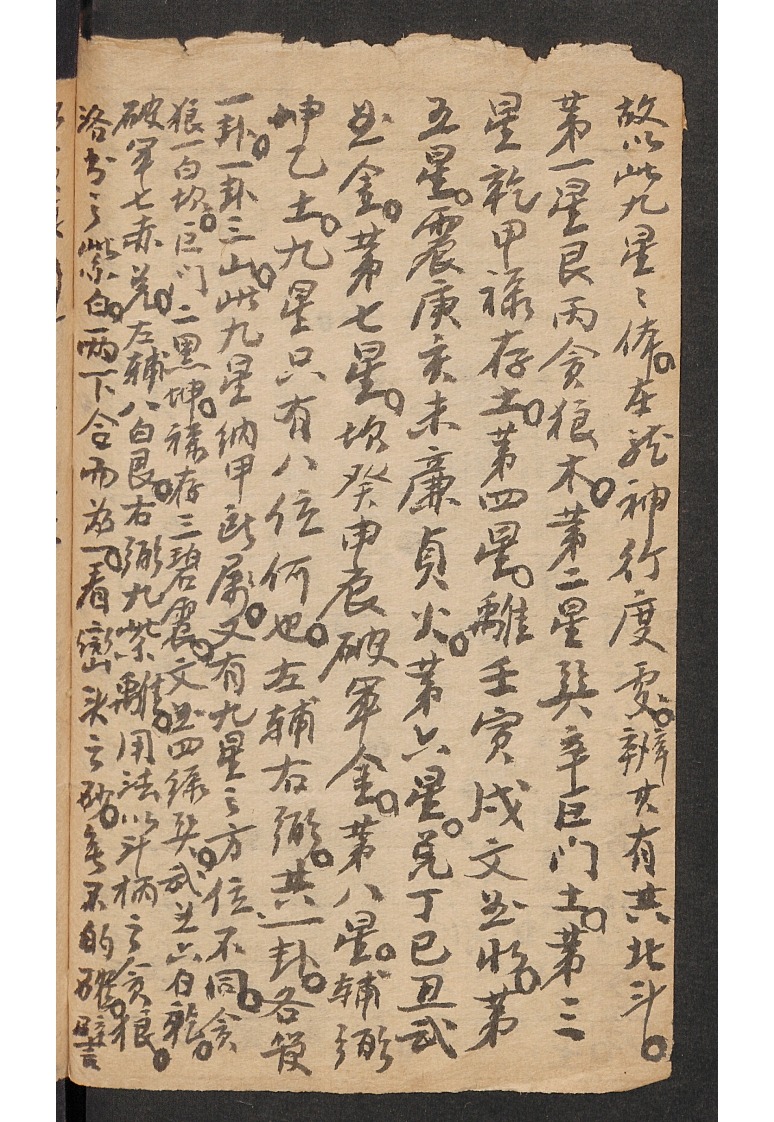 故以此九星之体。在龍神行度受。辨其有共北斗。
第一星艮丙貪狼木。第二星巽辛巨门土。第三
星乾甲禄存土。第四星。離壬寅戌文曲水。第
五星。震庚亥未廉貞火。第六星。兑丁巳丑武
曲金。第七星。坎癸申辰破軍金。第八星。輔弼
坤乙土。九星只有八位何也。左輔右弼。共一卦。各管
一卦。一卦三山。此九星纳甲所属。又有九星之方位不同。貪
狼一白坎。巨门二黑坤。禄存三碧震。文曲四緑巽。武曲六白乾。
破軍七赤兑。左輔八白艮。右弼九紫離。用法以斗柄之貪狼。
洛書之紫白。两下合而為一。看巒头之砂。無不的確。譬